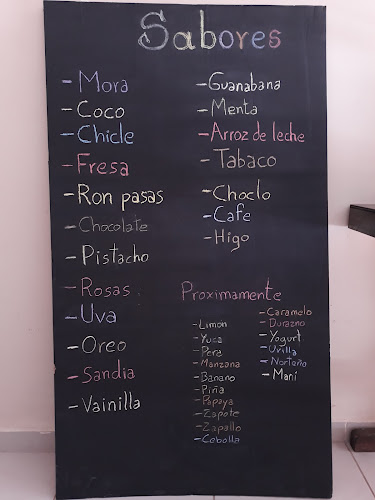 Sabores
- Mora
- Coco
- Chicle
- Fresa
- Ron pasas
- Chocolate
- Pistacho
- Rosas
- Uva
- Oreo
- Sandia
- Vainilla
- Guanabana
- Menta
- Arroz de leche
- Tabaco
- Choclo
- Cafe
- Higo
Proximamente
- Limon
- Yuca
- Pera
- Manzana
- Banano
- Piña
- Papaya
- Zapote
- Zapallo
- Cebolla
- Caramelo
- Durazno
- Yogurt
- Uvilla
- Norteño
- Maní